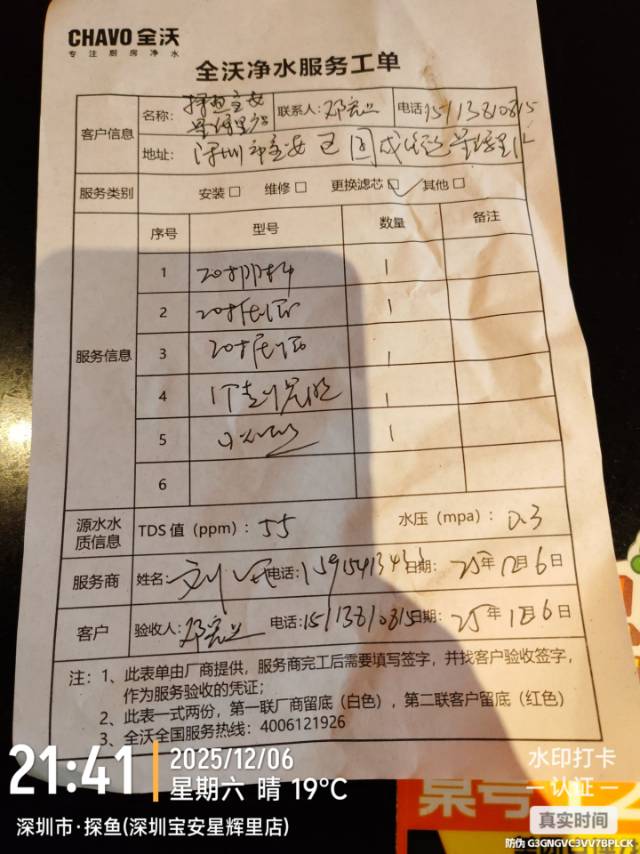 CHAVO 全沃
专注厨房净水
全沃净水服务工单
客户信息
名称: 探鱼宝安星辉里店 联系人: 邓宏 电话 15113810815
地址: 深圳市宝安区
服务类别 安装□ 维修□ 更换滤芯□✓ 其他□
服务信息
序号 型号 数量 备注
1 20寸 1
2 20寸 1
3 20寸 1
4 1
5 1
6
源水水质信息 TDS 值（ppm）: 55 水压（mpa）: 0.3
服务商 姓名: 刘 电话: 日期: 25年12月6日
客户 验收人: 邓宏 电话: 15113810815 日期: 25年1月6日
注: 1、此表单由厂商提供，服务商完工后需要填写签字，并找客户验收签字，
作为服务验收的凭证；
2、此表一式两份，第一联厂商留底（白色），第二联客户留底（红色）
3、全沃全国服务热线: 4006121926
21:41
2025/12/06
星期六 晴 19℃
深圳市·探鱼(深圳宝安星辉里店)
水印打卡
认证
真实时间
防伪 G3GNGVC3VV7BPLCK
桌号